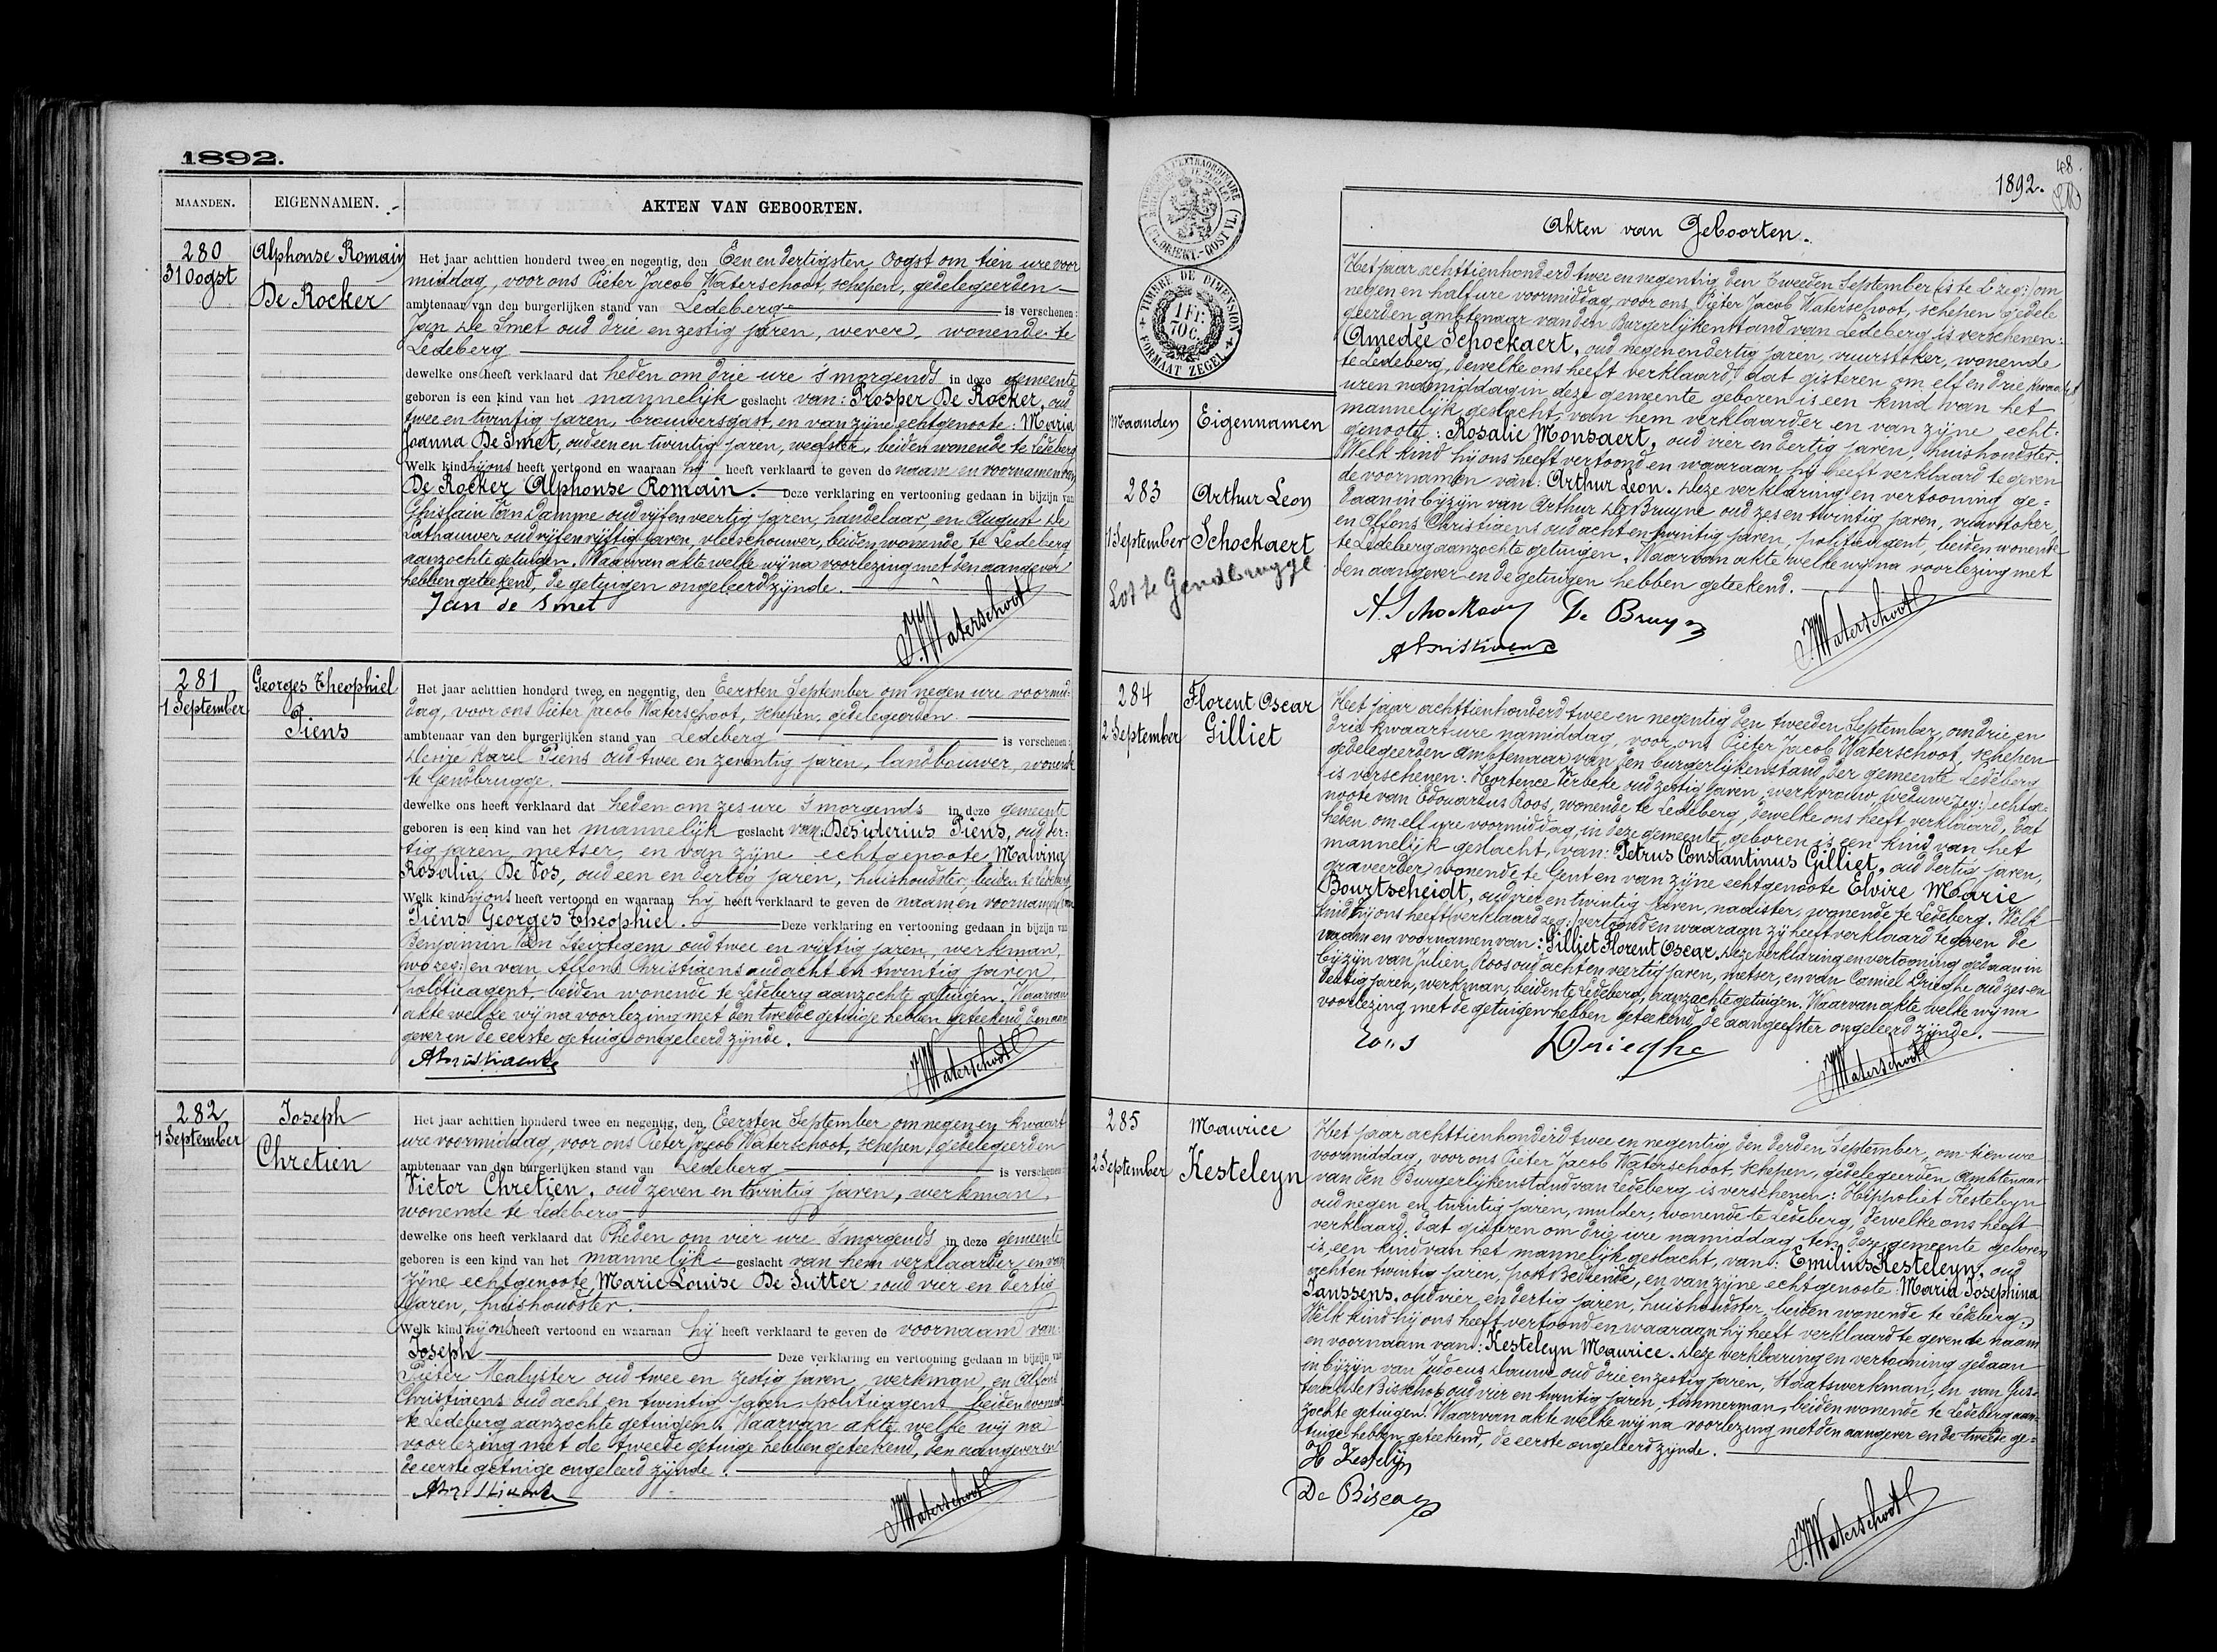 1892.
MAANDEN. EIGENNAMEN. AKTEN VAN GEBOORTEN.
280
31 Oogst
Alphonse Romain
De Rocker
Het jaar achttien honderd twee en negentig, den Een en dertigsten Oogst om tien ure voor
middag, voor ons Pieter Jacob Waterschoot, schepen, gedelegeerden
ambtenaar van den burgerlijken stand van Ledeberg is verschenen:
Jan De Smet oud drie en zestig jaren, wever, wonende te
Ledeberg
dewelke ons heeft verklaard dat heden om drie ure 's morgends in deze gemeente
geboren is een kind van het mannelijk geslacht van: Prosper De Rocker, oud
twee en twintig jaren, brouwersgast, en van zijne echtgenoote: Maria
Joanna De Smet, oud een en twintig jaren, weefster, beiden wonende te Ledeberg
Welk kind hij ons heeft vertoond en waaraan hij heeft verklaard te geven de naam en voornamen van
De Rocker Alphonse Romain. Deze verklaring en vertooning gedaan in bijzijn van
Ghislain Van Damme oud vijf en veertig jaren, handelaar, en August De
Cathauwer oud vijf en vijftig jaren, vleeschouwer, beiden wonende te Ledeberg
aanzochte getuigen. Waarvan akte welke wij na voorlezing met den aangever
hebben geteekend, de getuigen ongeleerd zijnde.
Jan de Smet
J. Waterschoot
281
1 September
Georges Theophiel
Piens
Het jaar achttien honderd twee en negentig, den Eersten September om negen ure voormid-
dag, voor ons Pieter Jacob Waterschoot, schepen, gedelegeerden
ambtenaar van den burgerlijken stand van Ledeberg is verschenen:
Karel Piens oud twee en zeventig jaren, landbouwer, wonende
te Gendbrugge.
dewelke ons heeft verklaard dat heden om zes ure 's morgends in deze gemeente
geboren is een kind van het mannelijk geslacht van: Desiderius Piens, oud der-
tig jaren, metser, en van zijne echtgenoote Malvina
Rosalia De Vos, oud een en dertig jaren, huishoudster, beiden te Ledeberg
Welk kind hij ons heeft vertoond en waaraan hij heeft verklaard te geven de naam en voornamen van
Piens Georges Theophiel. Deze verklaring en vertooning gedaan in bijzijn van
Benjamin Van oud twee en vijftig jaren, werkman,
en van Alfons Christiaens oud acht en twintig jaren
politieagent, beiden wonende te Ledeberg aanzochte getuigen. Waarvan
akte welke wij na voorlezing met den tweede getuige hebben geteekend, den aan
gever en de eerste getuige ongeleerd zijnde.
A Christiaens
J. Waterschoot
282
1 September
Joseph
Chretien
Het jaar achttien honderd twee en negentig, den Eersten September om negen en kwaart
ure voormiddag, voor ons Pieter Jacob Waterschoot, schepen, gedelegeerden
ambtenaar van den burgerlijken stand van Ledeberg is verschenen:
Victor Chretien, oud zeven en twintig jaren, werkman,
wonende te Ledeberg
dewelke ons heeft verklaard dat heden om vier ure 's morgends in deze gemeente
geboren is een kind van het mannelijk geslacht van hem verklaarder en van
zijne echtgenoote Marie Louise De Sutter oud vier en dertig
jaren, huishoudster.
Welk kind hij ons heeft vertoond en waaraan hij heeft verklaard te geven de voornaam van:
Joseph Deze verklaring en vertooning gedaan in bijzijn van
Pieter Malyster oud twee en zestig jaren, werkman, en Alfons
Christiaens oud acht en twintig jaren politieagent beiden wonende
te Ledeberg aanzochte getuigen. Waarvan akte welke wij na
voorlezing met de tweede getuige hebben geteekend, den aangever en
de eerste getuige ongeleerd zijnde.
A Christiaens
J. Waterschoot
48.
1892.
TIMBRE DE DIMENSION
1 FR. 70 C.
FORMAAT ZEGEL
Akten van Geboorten.
Maanden Eigennamen
283
1 September
Arthur Leon
Schockaert
Gendbrugge
Het jaar achttienhonderd twee en negentig den Tweeden September (is te L zeg:) om
negen en half ure voormiddag, voor ons Pieter Jacob Waterschoot, schepen gedele
geerden ambtenaar van den Burgerlijkenstand van Ledeberg is verschenen:
Amedée Schockaert, oud negen en dertig jaren, vuurstoker, wonende
te Ledeberg, dewelke ons heeft verklaard dat gisteren om elf en drie kwaart
uren namiddag in deze gemeente geboren is een kind van het
mannelijk geslacht van hem verklaarder en van zijne echt-
genoote: Rosalie Monsaert, oud vier en dertig jaren, huishoudster.
Welk kind hij ons heeft vertoond en waaraan hij heeft verklaard te geven
de voornamen van: Arthur Leon. Deze verklaring en vertooning ge-
daan in bijzijn van Arthur De Bruyne oud zes en twintig jaren, vuurstoker,
en Alfons Christiaens oud acht en twintig jaren, politieagent, beiden wonende
te Ledeberg aanzochte getuigen. Waarvan akte welke wij na voorlezing met
den aangever en de getuigen hebben geteekend.
A. Schockaert De Bruyne
A Christiaens
J. Waterschoot
284
2 September
Florent Oscar
Gilliet
Het jaar achttienhonderd twee en negentig den tweeden September, om drie en
drie kwaart ure namiddag, voor ons Pieter Jacob Waterschoot, schepen
gedelegeerden ambtenaar van den burgerlijkenstand der gemeente Ledeberg
is verschenen: Hortence Verbeke oud zestig jaren, werkvrouw, (weduwe zeg:) echtge-
noote van Edouardus Roos, wonende te Ledeberg, dewelke ons heeft verklaard, dat
heden om elf ure voormiddag, in deze gemeente, geboren is een kind van het
mannelijk geslacht, van: Petrus Constantinus Gilliet, oud dertig jaren,
graveerder, wonende te Gent en van zijne echtgenoote Elvire Marie
Bourtscheidt, oud vier en twintig jaren, naaister, wonende te Ledeberg. Welk
kind zij ons heeft (verklaard zeg:) vertoond en waaraan zij heeft verklaard te geven de
naam en voornamen van: Gilliet Florent Oscar. Deze verklaring en vertooning gedaan in
bijzijn van Julien Roos oud acht en veertig jaren, metser, en van Camiel Drieghe oud zes en
dertig jaren, werkman, beiden te Ledeberg, aanzochte getuigen. Waarvan akte welke wij na
voorlezing met de getuigen hebben geteekend, de aangeefster ongeleerd zijnde.
Roos Drieghe
J. Waterschoot
285
2 September
Maurice
Kesteleyn
Het jaar achttienhonderd twee en negentig den derden September, om tien ure
voormiddag, voor ons Pieter Jacob Waterschoot, schepen, gedelegeerden Ambtenaar
van den Burgerlijkenstand van Ledeberg is verschenen: Hippoliet Kesteleyn
oud negen en twintig jaren, mulder, wonende te Ledeberg, dewelke ons heeft
verklaard, dat gisteren om drie ure namiddag, ten deze gemeente geboren
is een kind van het mannelijk geslacht, van: Emilius Kesteleyn, oud
acht en twintig jaren, postbediende, en van zijne echtgenoote: Maria Josephina
Janssens, oud vier en dertig jaren, huishoudster, beiden wonende te Ledeberg.
Welk kind hij ons heeft vertoond en waaraan hij heeft verklaard te geven de naam
en voornaam van: Kesteleyn Maurice. Deze verklaring en vertooning gedaan
in bijzijn van Judocus Dauwe oud drie en zestig jaren, Staatswerkman, en van Gus-
taaf De Bisschop oud vier en twintig jaren, timmerman, beiden wonende te Ledeberg aan-
zochte getuigen. Waarvan akte welke wij na voorlezing met den aangever en de tweede ge-
tuige hebben geteekend, de eerste ongeleerd zijnde.
H Kestelijn
De Biscop
J. Waterschoot